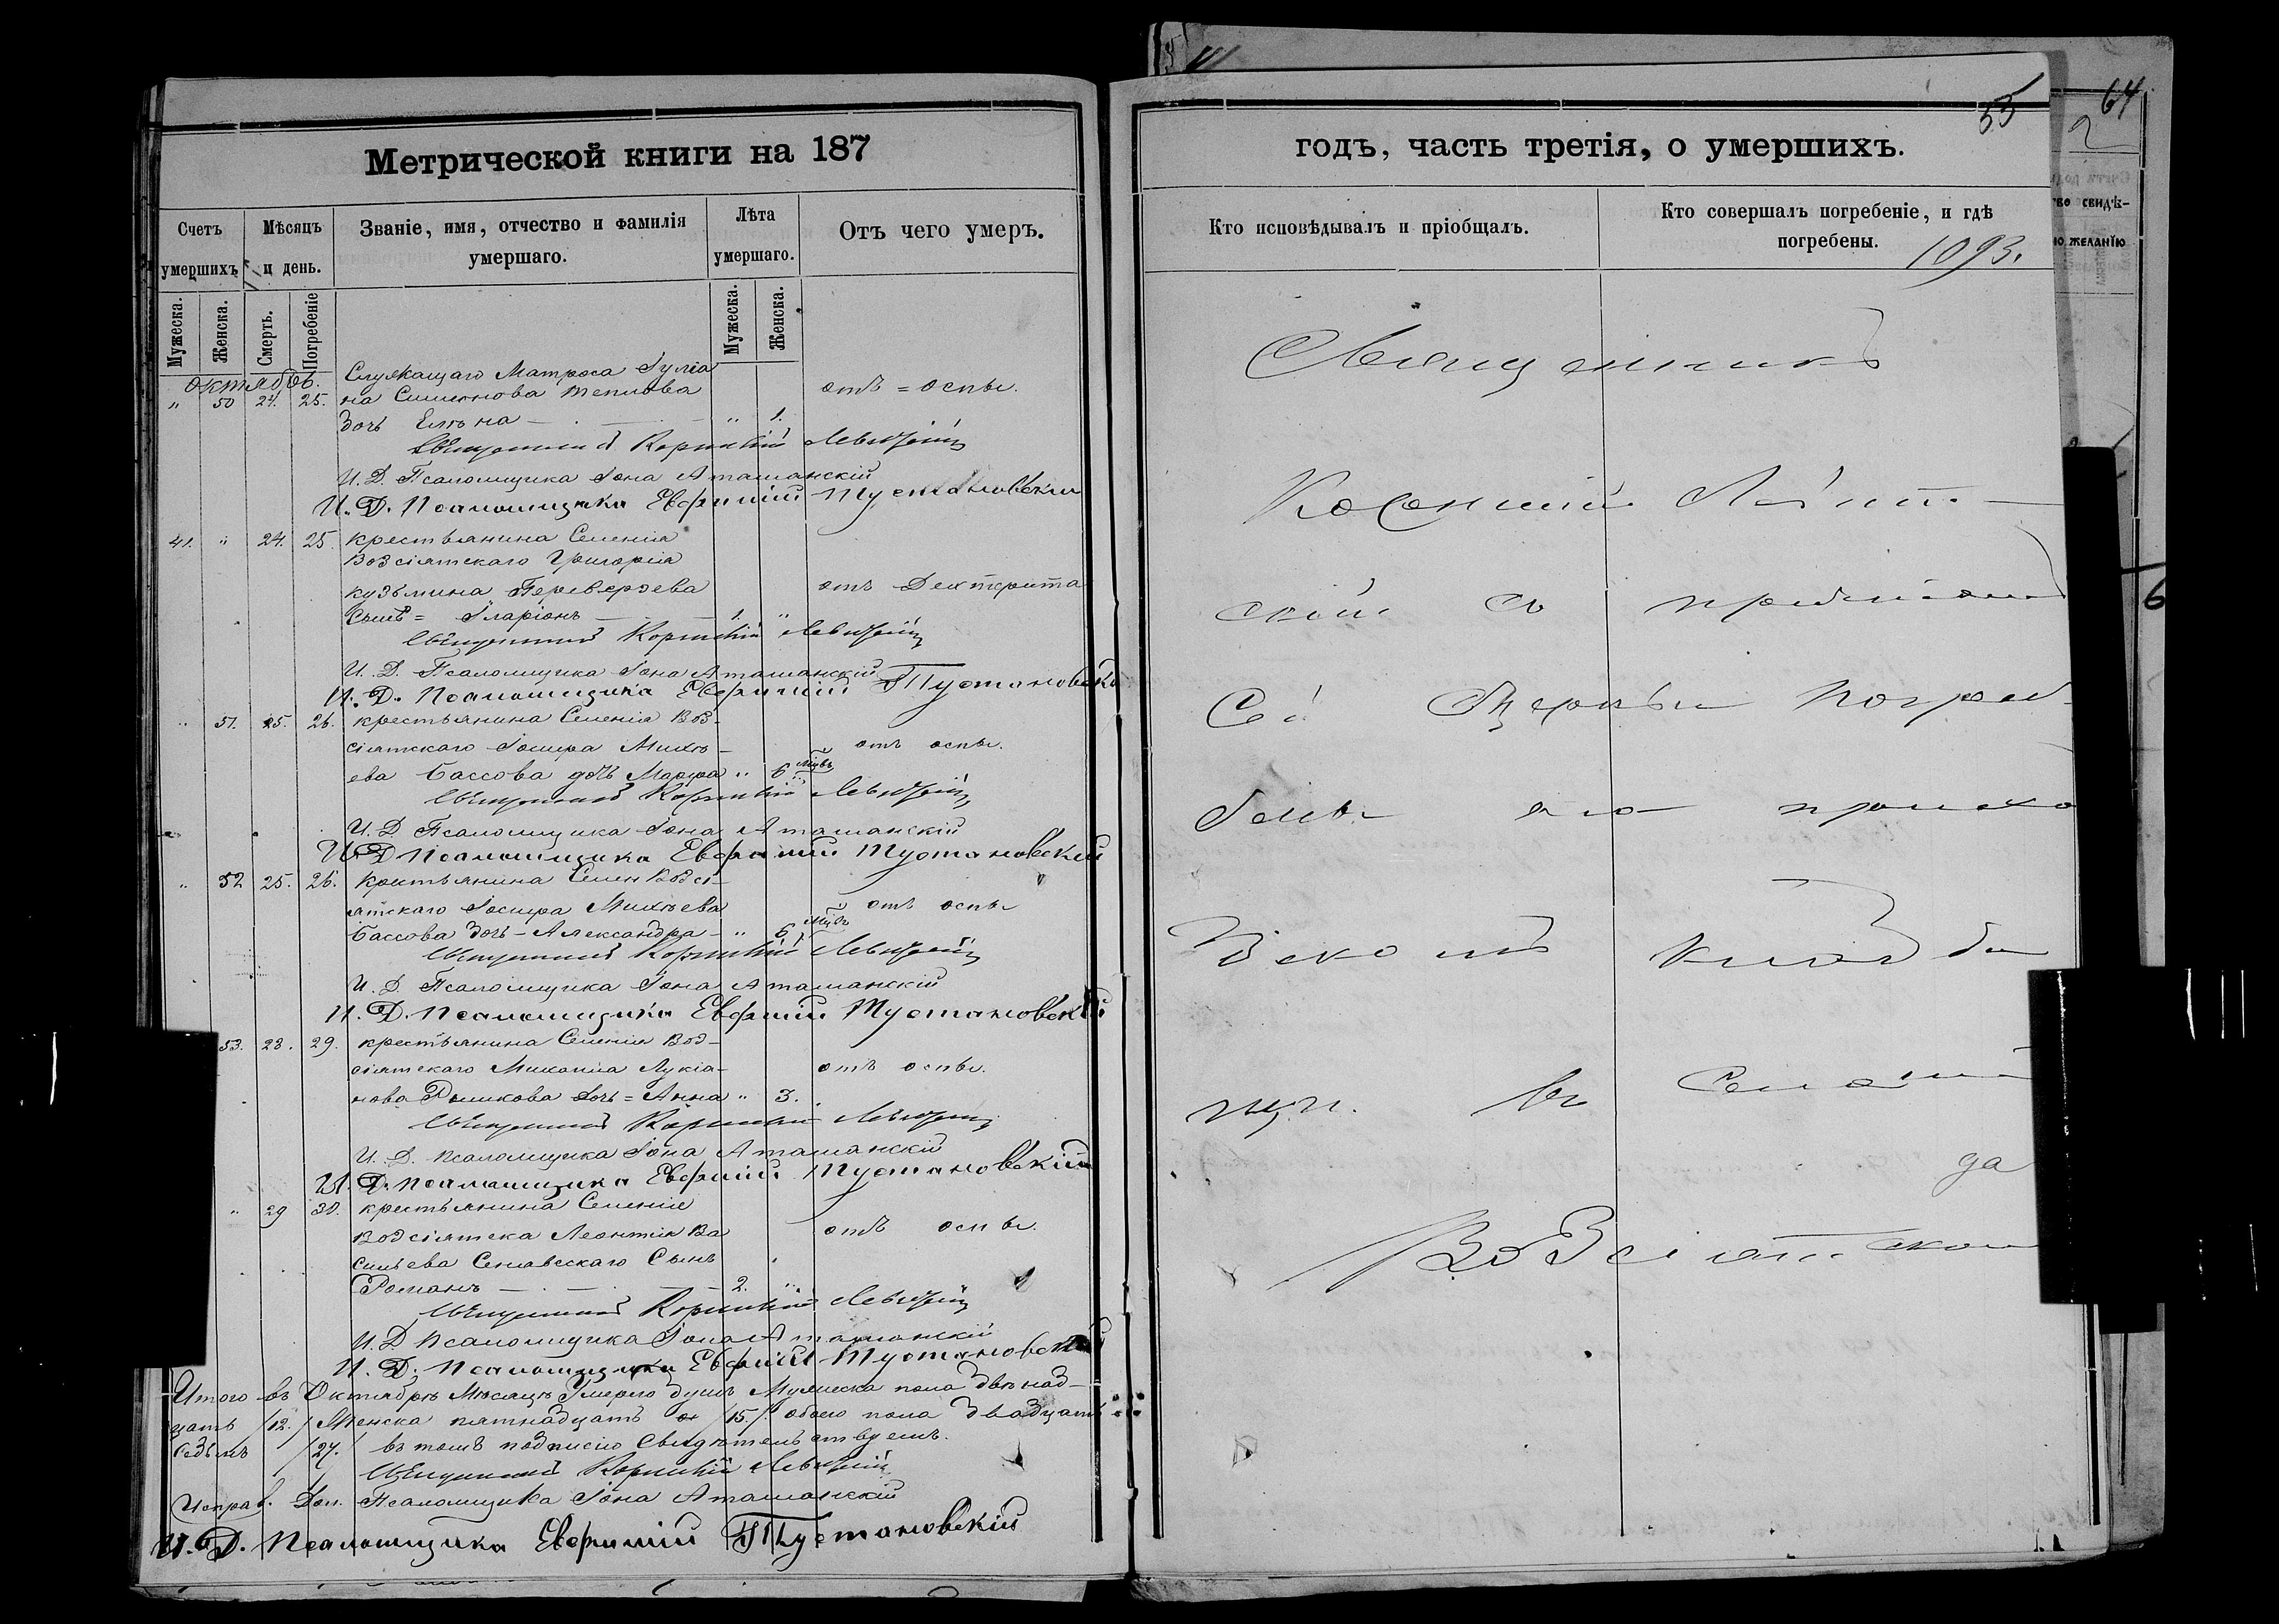 Метрической книги на 187
Счетъ умершихъ
Мѣсяцъ и день.
Званіе, имя, отчество и фамилія умершаго.
Лѣта умершаго.
Отъ чего умеръ.
Мужеска.
Женска.
Смерть.
Погребеніе
Мужеска.
Женска.
Октябрь.
Служащаго Матроса Іуліа
" 50 24. 25. на Симеонова Теплова отъ = оспы.
дочь Елѣна " 1.
Священникъ Корнилій Левицкій
И. Д. Псаломщика Іона Аташанскій
И. Д. Псаломщика Евфимій Тустановскій
41. " 24. 25. крестьянина Селенія
Возсіятскаго Григорія
кузьмина Переверзева отъ Дехтерита
сынъ = Іларіонъ 1. "
Священникъ Корнилій Левицкій
И. Д. Псаломщика Іона Аташанскій
И. Д. Псаломщика Евфимій Тустановскій
" 51. 25. 26. крестьянина Селенія Воз-
сіятскаго Іосифа Михѣ- отъ оспы.
ева Бассова дочь Марфа " 6 мцъ
Священникъ Корнилій Левицкій
И. Д. Псаломщика Іона Аташанскій
И. Д. Псаломщика Евфимій Тустановскій
" 52 25. 26. крестьянина Селен Возсі-
ятскаго Іосифа Михѣева отъ оспы
Бассова дочь - Александра - " 6 мцъ
Священникъ Корнилій Левицкій
И. Д. Псаломщика Іона Аташанскій
И. Д. Псаломщика Евфимій Тустановскій
53. 28. 29. крестьянина Селенія Воз-
сіятскаго Михаила Лукіа- отъ оспы.
нова Рыликова дочь = Анна " 3.
Священникъ Корнилій Левицкій
И. Д. Псаломщика Іона Аташанскій
И. Д. Псаломщика Евфимій Тустановскій
" 29 30. крестьянина Селенія
Возсіятска Леонтія Ва отъ оспы.
сильева Сенавскаго Сынъ
Романъ 2. "
Священникъ Корнилій Левицкій
И. Д. Псаломщика Іона Аташанскій
И. Д. Псаломщика Евфимій Тустановскій
Итого въ Октябрѣ Мѣсяцѣ Умерло душъ Мужеска пола двѣнад-
цать /12./ Женска пятнадцать /15./ обоего пола двадцать
седьмъ /27./ въ томъ подписію свидѣтельствуемъ.
Священникъ Корнилій Левицкій
Исправ. Дол. Псаломщика Іона Аташанскій
И. Д. Псаломщика Евфимій Тустановскій
55
64
2
годъ, часть третія, о умершихъ.
Кто исповѣдывалъ и пріобщалъ.
Кто совершалъ погребеніе, и гдѣ погребены.
1093.
во свидѣ-
по желанію
Священникъ
Корнилій Левит-
скій съ причтомъ
Сей Церкви погреб
бены на приход
скомъ кладби
щи. въ Селені
да
Возсіятском
6